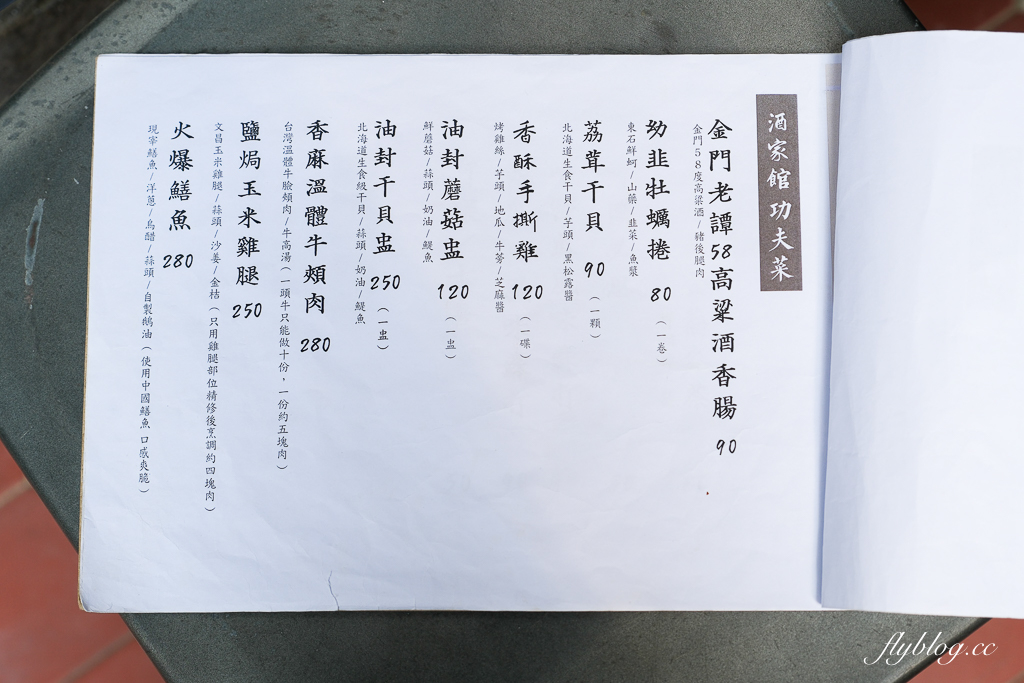 酒家館功夫菜
金門老譚58高粱酒香腸 90
金門58度高粱酒/豬後腿肉
幼韭牡蠣捲 80 （一卷）
東石鮮蚵/山藥/韭菜/魚漿
荔茸干貝 90 （一顆）
北海道生食干貝/芋頭/黑松露醬
香酥手撕雞 120 （一碟）
烤雞絲/芋頭/地瓜/牛蒡/芝麻醬
油封蘑菇盅 120 （一盅）
鮮蘑菇/蒜頭/奶油/鯷魚
油封干貝盅 250 （一盅）
北海道生食級干貝/蒜頭/奶油/鯷魚
香麻溫體牛頰肉 280
台灣溫體牛臉頰肉/牛高湯（一頭牛只能做十份，一份約五塊肉）
鹽焗玉米雞腿 250
文昌玉米雞腿/蒜頭/沙姜/金桔（只用雞腿部位精修後烹調約四塊肉）
火爆鱔魚 280
現宰鱔魚/洋蔥/烏醋/蒜頭/自製鵝油（使用中國鱔魚 口感爽脆）
flyblog.cc